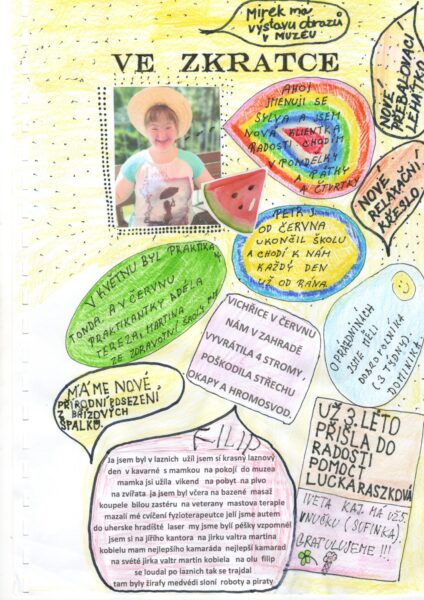 Mirek má
výstavu obrazů
v MUZEU
VE ZKRATCE
NOVÉ
PŘEBALOVACÍ
LEHÁTKO
AHOJ
JMENUJI SE
SYLVA A JSEM
NOVÁ KLIENTKA
RADOSTI. CHODÍM
V PONDĚLKY
A PÁTKY
A ČTVRTKY
NOVÉ
RELAXAČNÍ
KŘESLO
PETR J.
OD ČERVNA
UKONČIL ŠKOLU
A CHODÍ K NÁM
KAŽDÝ DEN
UŽ OD RÁNA
V KVĚTNU BYL PRAKTIKA
TONDA. A V ČERVNU
PRAKTIKANTKY ADÉLA
TEREZA, MARTINA
ZE ZDRAVOTNÍ ŠKOLY
VICHŘICE V ČERVNU
NÁM V ZAHRADĚ
VYVRÁTILA 4 STROMY,
POŠKODILA STŘECHU
OKAPY A HROMOSVOD.
O PRÁZDNINÁCH
JSME MĚLI
DOBROVOLNÍKA
(3 TÝDNY)
DOMINIKA
MÁME NOVÉ
PŘÍRODNÍ POSEZENÍ
Z BŘÍZOVÝCH
ŠPALKŮ.
UŽ 3. LÉTO
PŘIŠLA DO
RADOSTI
POMOCT
LUCKARASZKOVÁ
IVETA KAJ. MÁ UŽ 5.
VNUČKU (SOFINKA),
GRATULUJEME!!!
FILIP
Ja jsem byl v laznich užil jsem si krasny laznový
den v kavarné s mamkou na pokojí do muzea
mamka jsi užila vikend na pobyt na pivo
na zvířata ja jsem byl včera na bazené masaž
koupele bilou zastéru na veterany mastova terapie
mazali mé cvičení fyzioterapeutce jeli jsme autem
do uherske hradiště laser my jsme byli péšky vzpomněl
jsem si na jiřího kantora na jirku valtra martina
kobielu mam nejlepšího kamaráda nejlepší kamarad
na světé jirka valtr martin kobiela na olu filip
se loudal po laznich tak se trajdal
tam byly žirafy medvédi sloni roboty a piraty